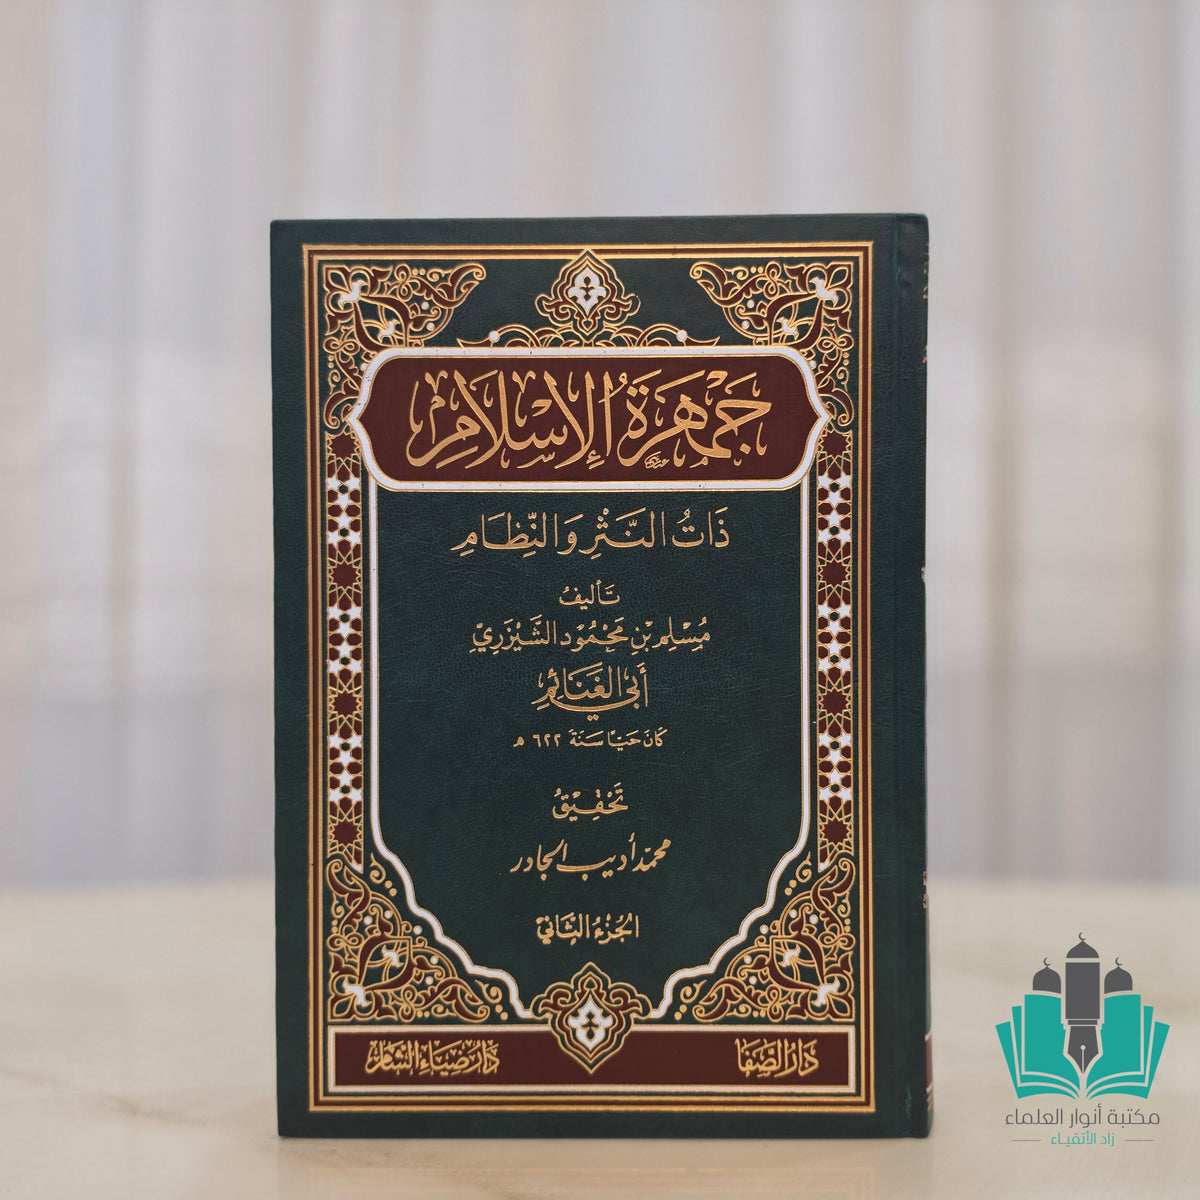 جَمْهَرَةُ الإِسْلَامِ
ذَاتُ النَّثْرِ وَالنِّظَامِ
تَأليفُ
مُسْلِم بْنِ مَحْمُود الشَّيْزَرِيِّ
أَبِي الغَنَائِمِ
كَانَ حَيًّا سَنَةَ ٦٢٢ هـ
تَحْقِيْقُ
محمّد أديب الجادر
الجُزْءُ الثَّانِي
دَارُ الصَّفَا
دَارُ ضِيَاءِ الشَّامِ
مكتبة أنوار العلماء
زاد الأتقياء